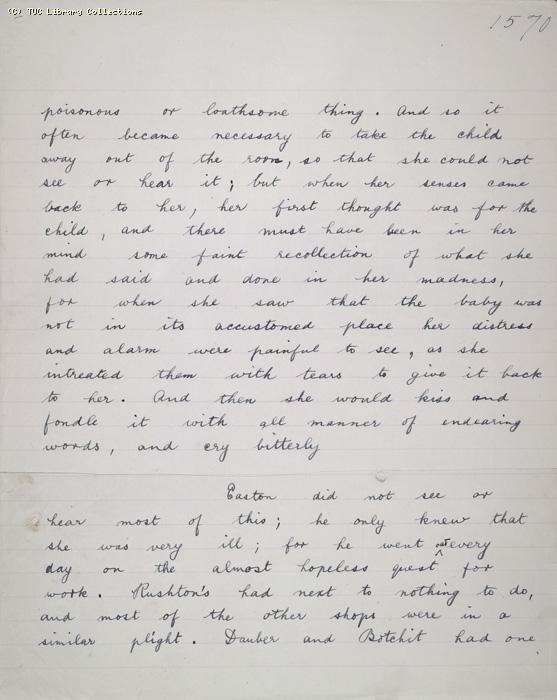 (C) TUC Library Collections
1570
poisonous or loathsome thing. And so it
often became necessary to take the child
away out of the room, so that she could not
see or hear it; but when her senses came
back to her, her first thought was for the
child, and there must have been in her
mind some faint recollection of what she
had said and done in her madness,
for when she saw that the baby was
not in its accustomed place her distress
and alarm were painful to see, as she
intreated them with tears to give it back
to her. And then she would kiss and
fondle it with all manner of endearing
words, and cry bitterly
Easton did not see or
hear most of this; he only knew that
she was very ill; for he went out every
day on the almost hopeless quest for
work. Rushton's had next to nothing to do,
and most of the other shops were in a
similar plight. Dauber and Botchit had one